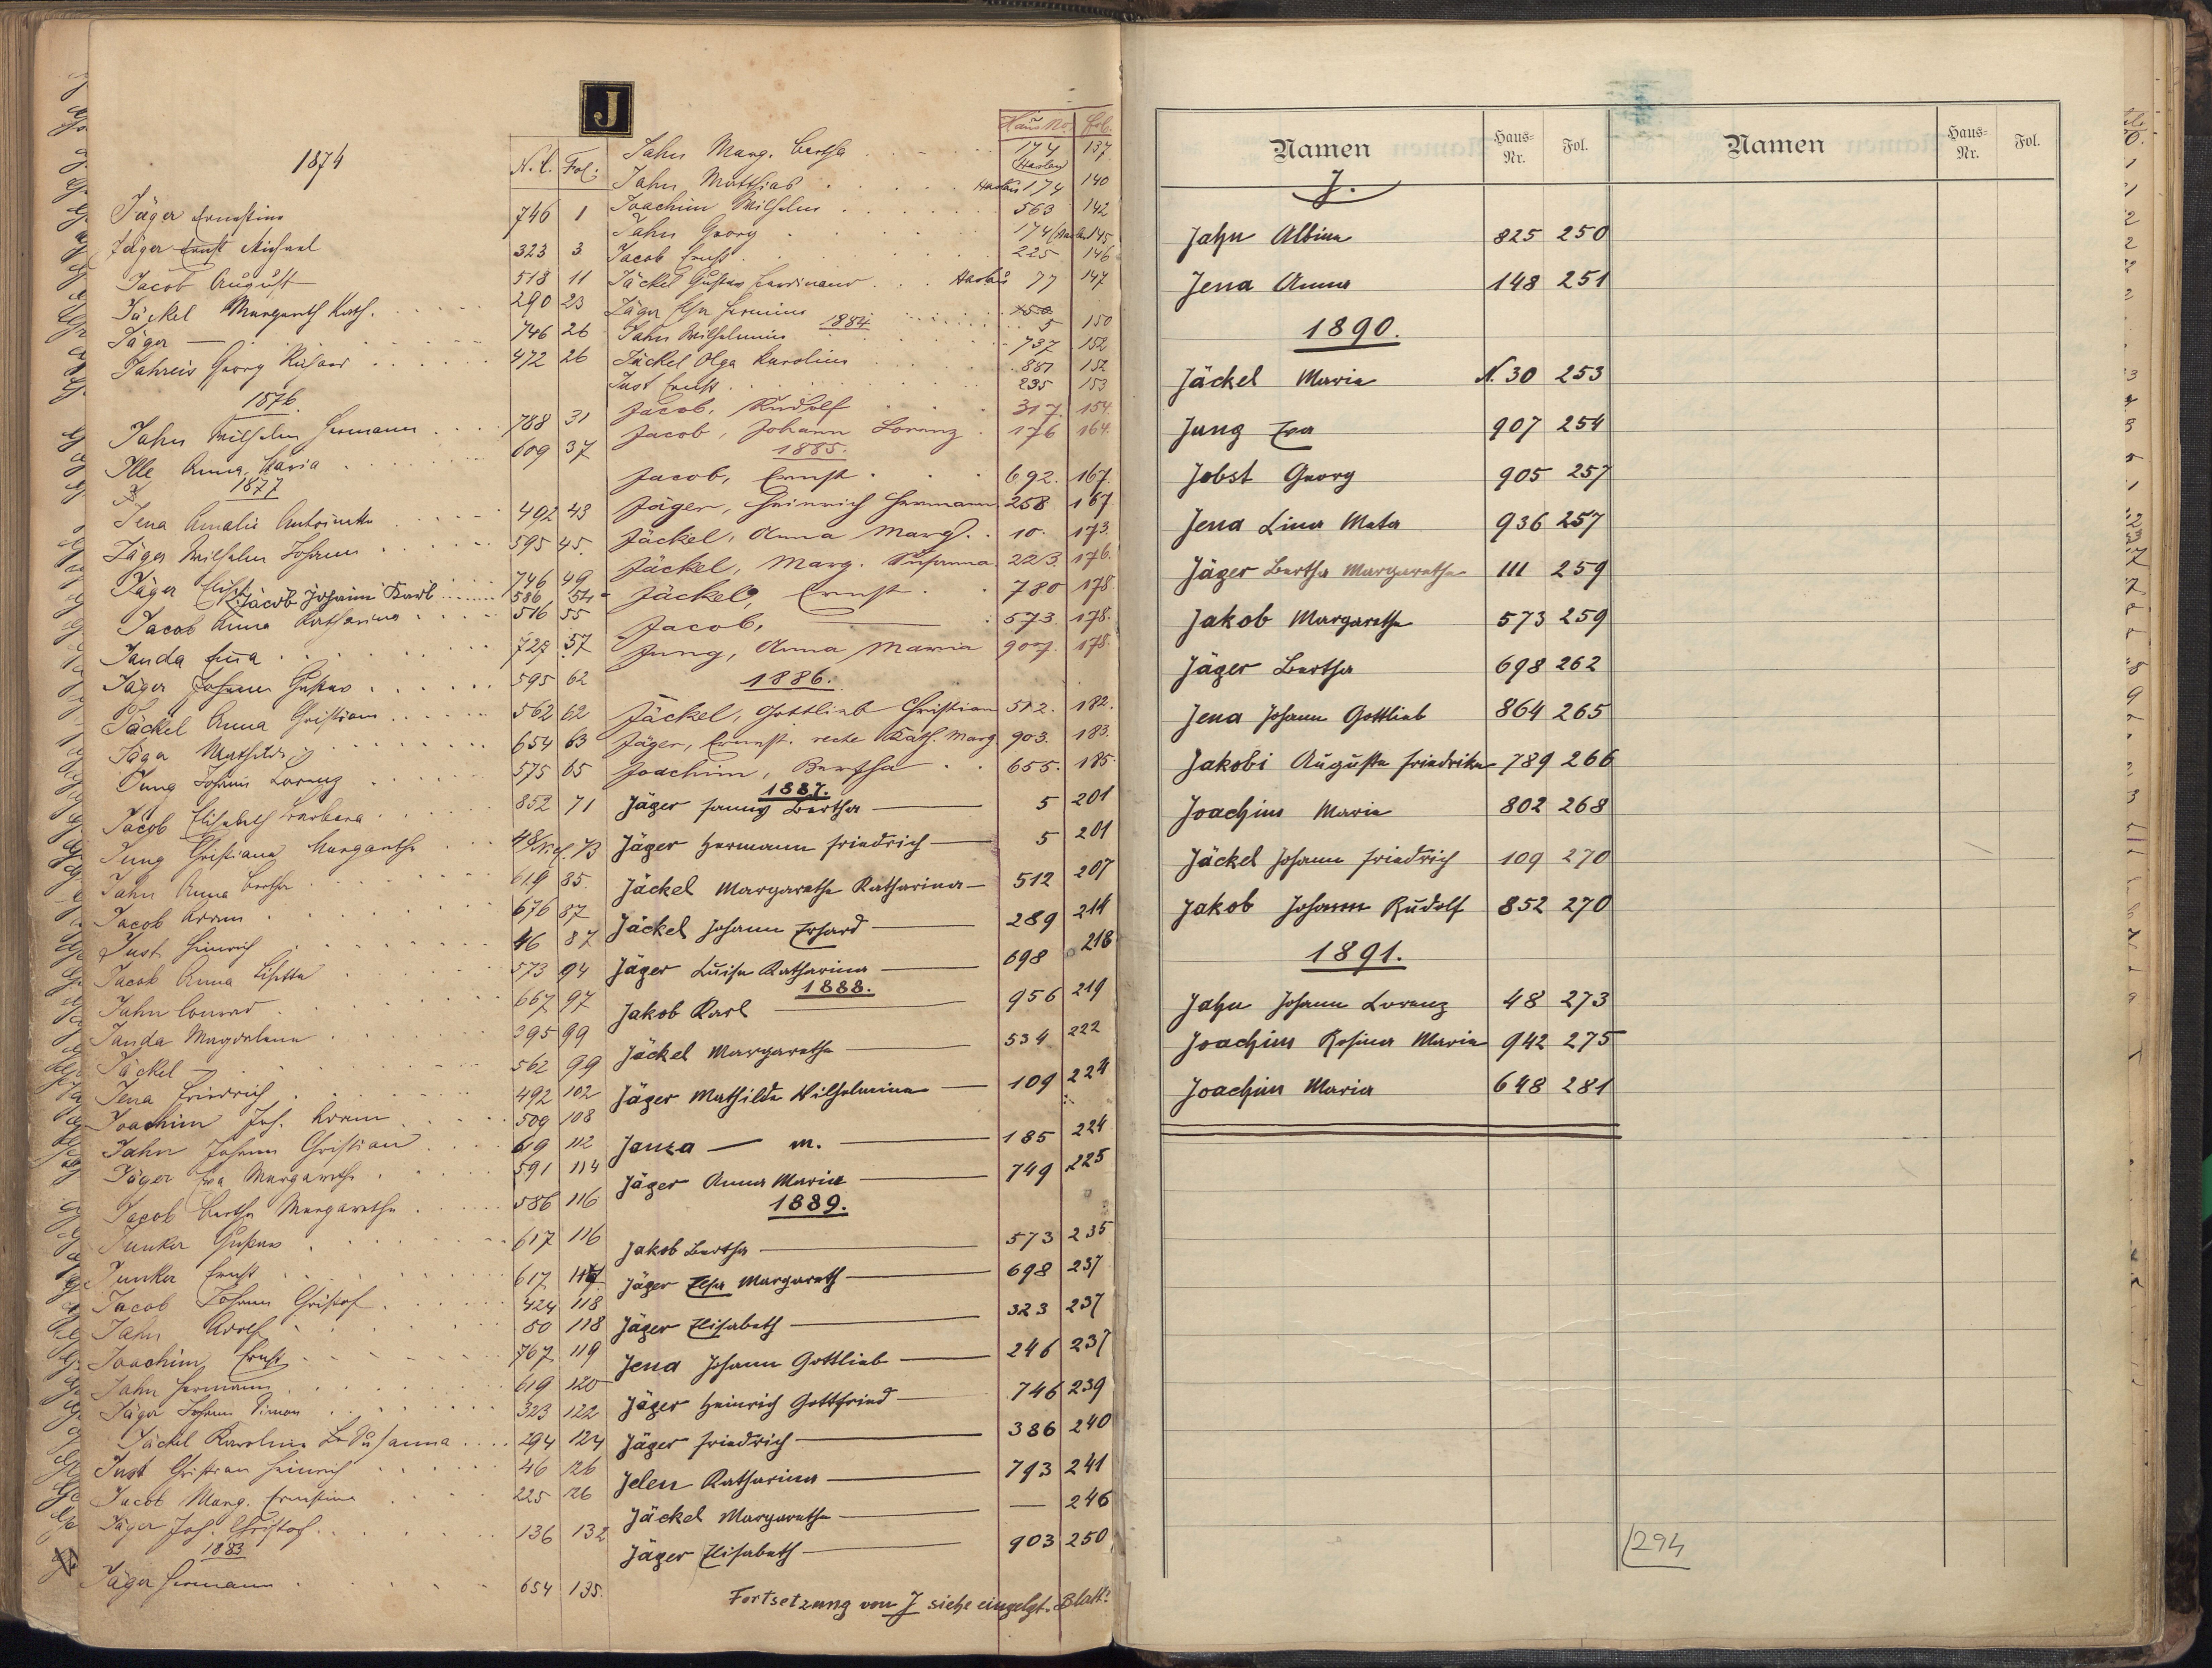 J
1874
N.C. Fol.
Jäger Ernestine 746 1
Jäger Ernst Michael 323 3
Jacob August 518 11
Jäckel Margareth Kath. 290 23
Jäger — 746 26
Jahreis Georg Richard 472 26
1876.
Jahn Wilhelm Hermann 788 31
Ille Anna Maria 609 37
1877
Jena Amalie 492 43
Jäger Wilhelm Johann 595 45.
Jäger 746 49
Jacob Johann Karl 586 54
Jacob Anna Katharina 516 55
Janda 727 57
Jäger Johann Gustav 595 62
Jäckel Anna Christiane 562 62
Jäger Mathilde 654 63
Jung Johann Lorenz 575 65
Jacob Elisabeth Barbara 852 71
Jung Christiane Margarethe 48/ 73
Jahn Anna Bertha 619 85.
Jacob Adam 676 87
Just Heinrich 46 87
Jacob Anna Lisette 573 94
Jahn Conrad 667 97
Janda Magdalena 395 99
Jäckel — 562 99
Jena Friedrich 492 102
Joachim Joh. Adam 509 108
Jahn Johann Christian 619 112
Jäger Eva Margarethe 591 114
Jacob Bertha Margarethe 586 116
Junker Gustav 617 116
Junker Ernst 617 117
Jacob Johann Christof 424 118
Jahn Adolf 50 118
Joachim Ernst 767 119
Jahn Hermann 619 120
Jäger Johann Simon 323 122
Jäckel Karoline Susanna 294 124
Just Christian Heinrich 46 126
Jacob Marg. Ernestine 225 126
Jäger Joh. Christof. 136 132
1883
Jäger Hermann 654 135.
Haus No. Fol.
Jahn Marg. Bertha 174 (Haslau) 137
Jahn Matthias Haslau 174 140
Joachim Wilhelm 563 142
Jahn Georg 174 145
Jacob Ernst 225 146
Jäckel Gustav Ferdinand Haslau 77 147
Jäger Hermine 5 150
1884
Jahn Wilhelmine 737 152
Jäckel Olga Karoline 887 152
Just Ernst 235 153
Jacob, Rudolf 317. 154.
Jacob, Johann Lorenz 176 164.
1885.
Jacob, Ernst 692. 167.
Jäger, Heinrich Hermann 258 167
Jäckel, Anna Marg. 10. 173.
Jäckel, Marg. Susanna 223. 176.
Jäckel, Ernst 780 178.
Jacob, — 573 178.
Jung, Anna Maria 907. 178.
1886.
Jäckel, Gottlieb Christian 512. 182.
Jäger, Ernst. recte Kath. Marg 903. 183.
Joachim, Bertha 655. 185.
1887.
Jäger Fanny Bertha — 5 201
Jäger Hermann Friedrich — 5 201
Jäckel Margarethe Katharina — 512 207
Jäckel Johann Erhard — 289 214
Jäger Luise Katharina — 698 218
1888.
Jakob Karl — 956 219
Jäckel Margarethe — 534 222
Jäger Mathilde Wilhelmine — 109 224
Janza — m. — 185 224
Jäger Anna Maria — 749 225
1889.
Jakob Bertha — 573 235
Jäger Elsa Margareth — 698 237
Jäger Elisabeth — 323 237
Jena Johann Gottlieb — 246 237
Jäger Heinrich Gottfried — 746 239
Jäger Friedrich — 386 240
Jelen Katharina — 793 241
Jäckel Margarethe — — 246
Jäger Elisabeth — 903 250
Fortsetzung von J siehe eingelgt. Blatt.
Namen Haus-Nr. Fol. Namen Haus-Nr. Fol.
J.
Jahn Albine 825 250
Jena Anna 148 251
1890.
Jäckel Maria N. 30 253
Jung Eva 907 254
Jobst Georg 905 257
Jena Lina Meta 936 257
Jäger Bertha Margarethe 111 259
Jakob Margarethe 573 259
Jäger Bertha 698 262
Jena Johann Gottlieb 864 265
Jakobi Auguste Friedrike 789 266
Joachim Maria 802 268
Jäckel Johann Friedrich 109 270
Jakob Johann Rudolf 852 270
1891.
Jahn Johann Lorenz 48 273
Joachim Rosina Maria 942 275
Joachim Maria 648 281
294